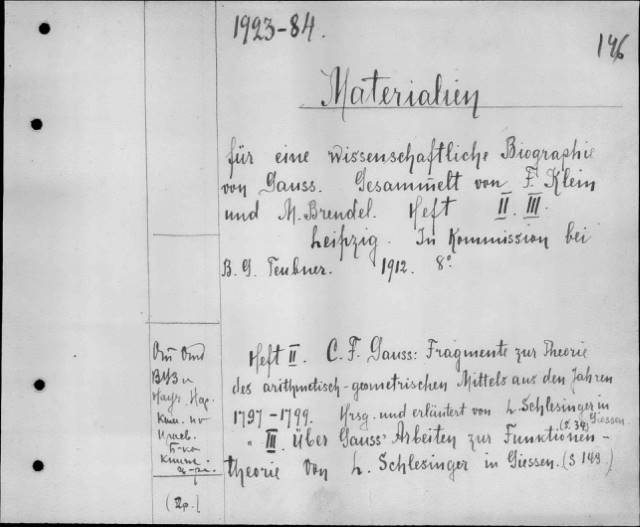 1923-84.
146
Materialien
für eine wissenschaftliche Biographie
von Gauss. Gesammelt von F. Klein
und M. Brendel. Heft II. III.
Leipzig. In Kommission bei
B. G. Teubner. 1912. 8°
Heft II. C. F. Gauss: Fragmente zur Theorie
des arithmetisch-geometrischen Mittels aus den Jahren
1797-1799. Hrsg. und erläutert von L. Schlesinger in
Giessen.
" III. Über Gauss' Arbeiten zur Funktionen-
theorie von L. Schlesinger in Giessen. (S 143.)